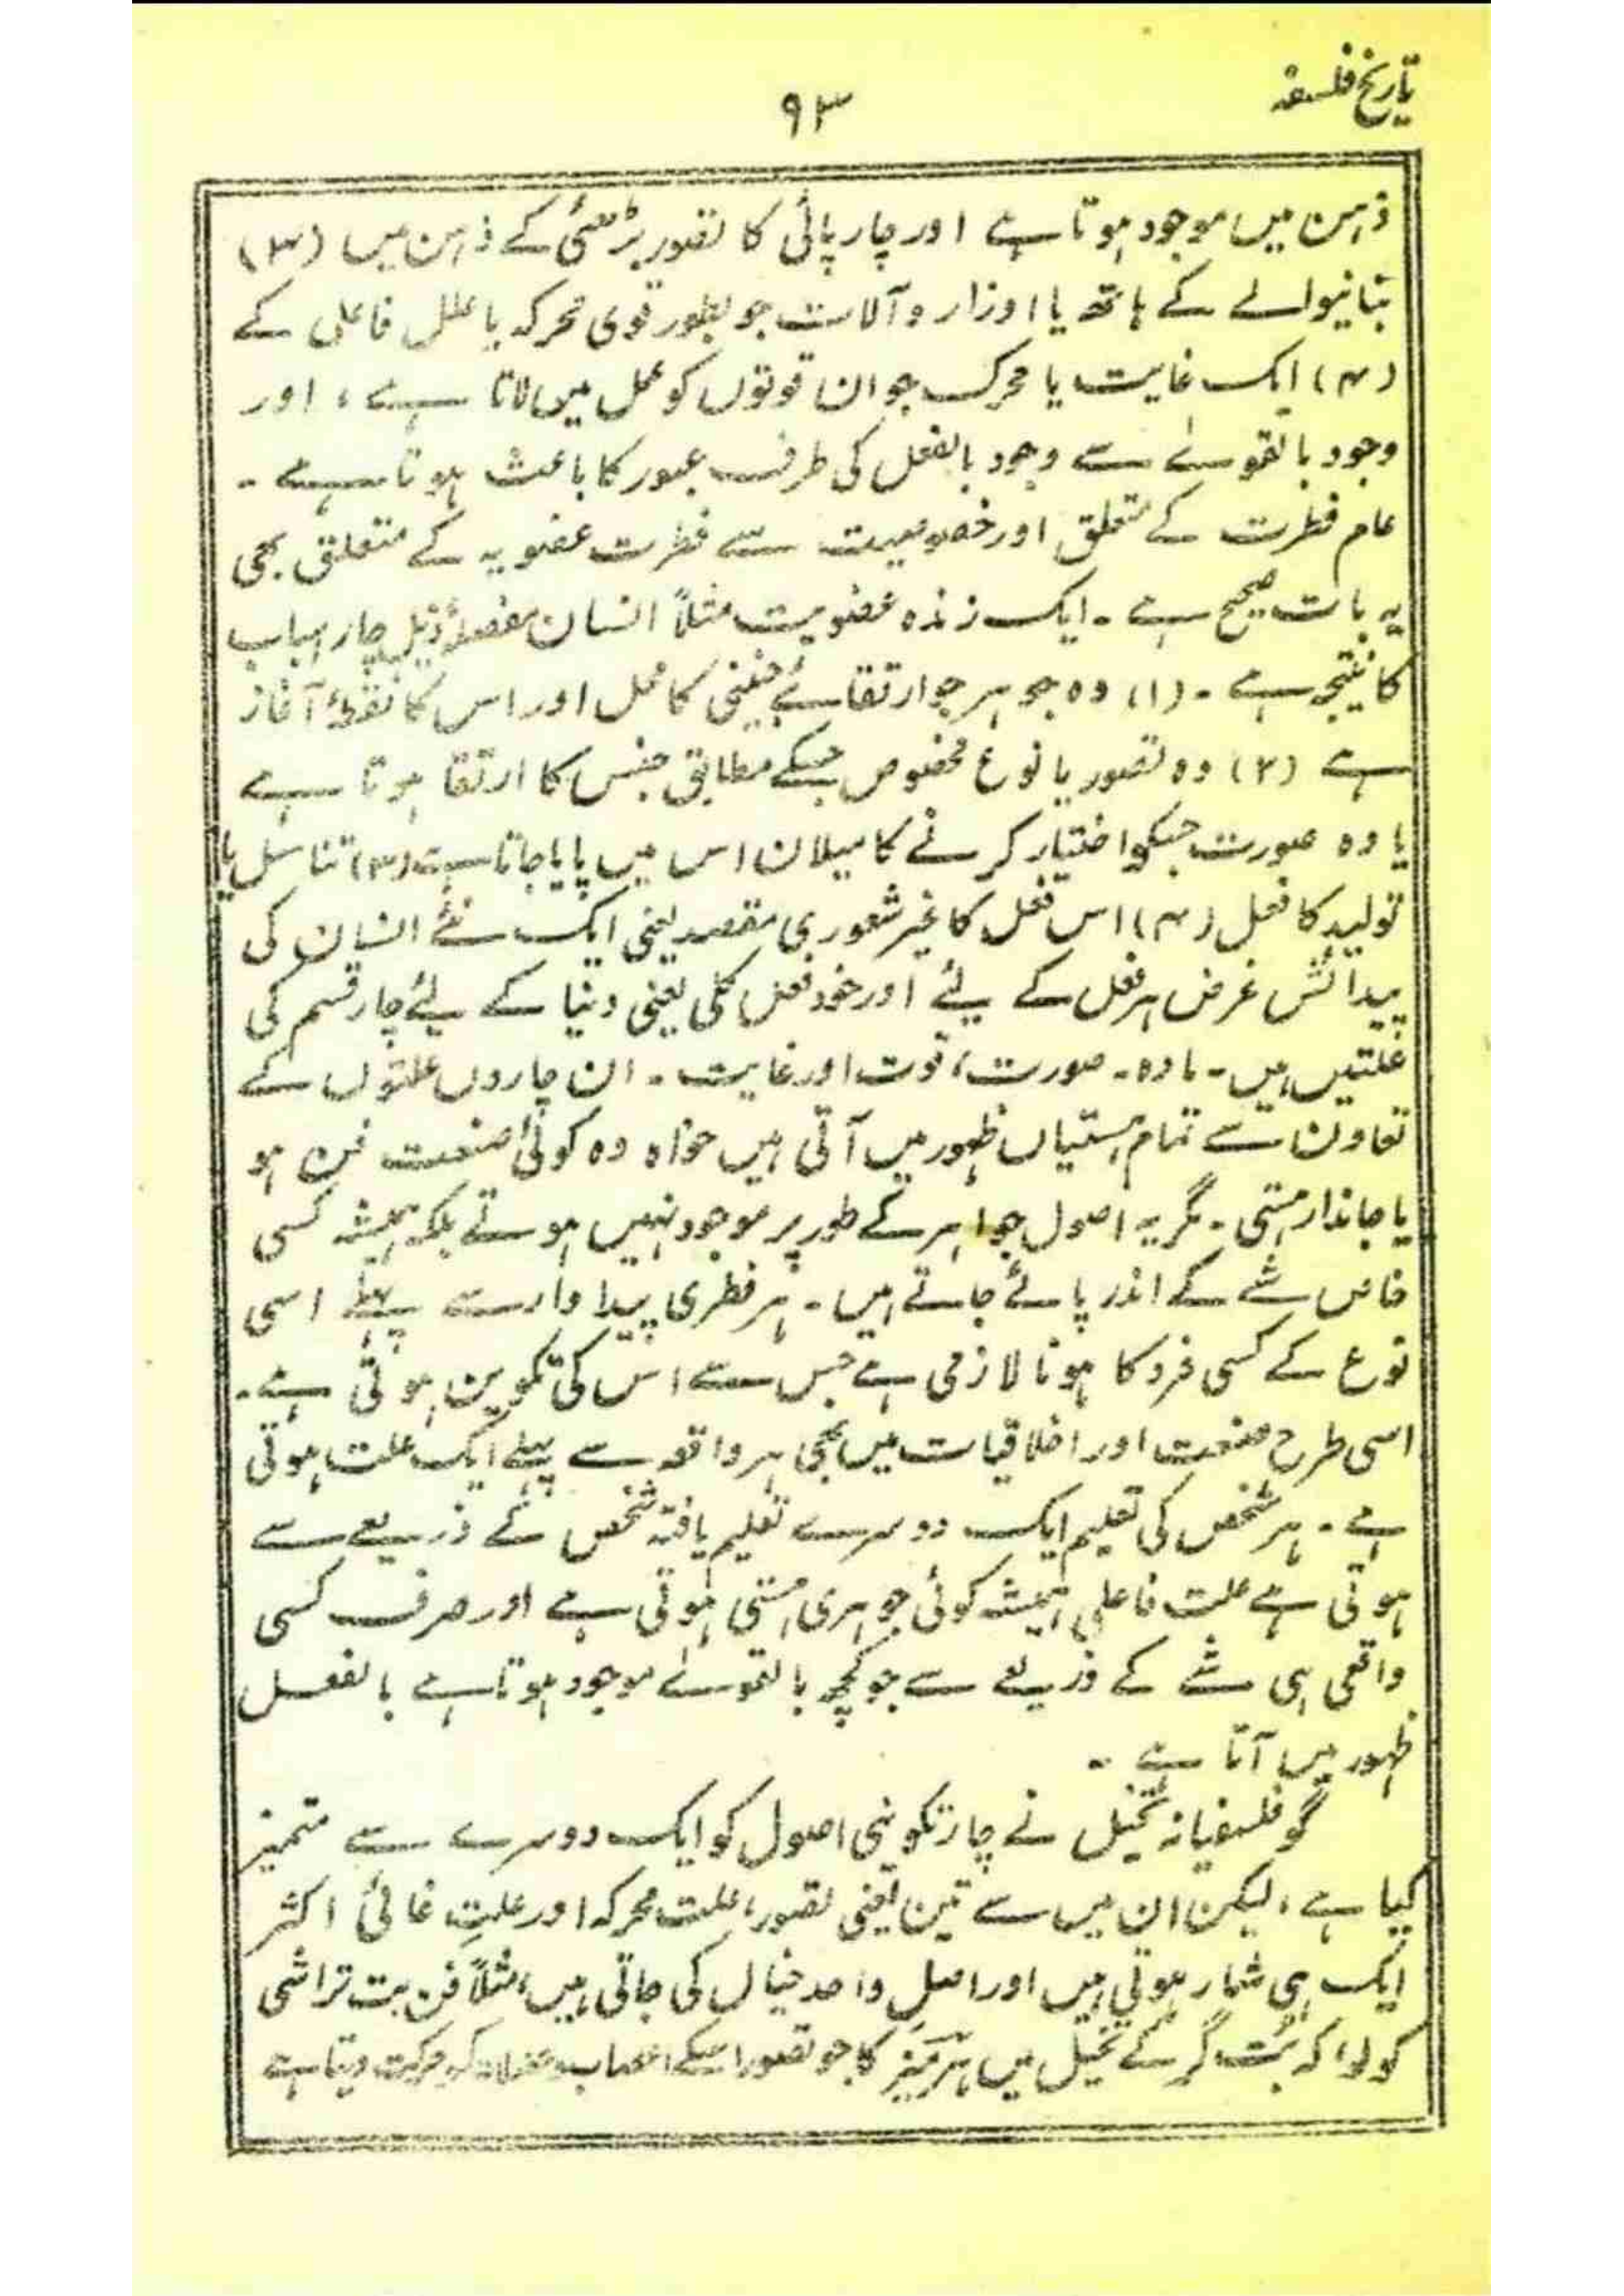 تاریخ فلسفہ
۹۳
ذہن میں موجود ہوتا ہے اور چارپائی کا تصور بڑھئی کے ذہن میں (۳)
بنانیوالے کے ہاتھ یا اوزار و آلات جو بطور قوی محرکہ یا علل فاعلی کے
(۴) ایک غایت یا محرک جو ان قوتوں کو عمل میں لاتا ہے، اور
وجود بالقوےٰ سے وجود بالفعل کی طرف عبور کا باعث ہوتا ہے ۔
عام فطرت کے متعلق اور خصوصیت سے فطرت عضویہ کے متعلق بھی
یہ بات صحیح ہے ۔ ایک زندہ عضویت مثلاً انسان مفصلۂ ذیل چار اسباب
کا نتیجہ ہے ۔ (۱) وہ جوہر جو ارتقائے جنینی کا محل اور اس کا نقطۂ آغاز
ہے (۲) وہ تصور یا نوع مخصوص جسکے مطابق جنس کا ارتقا ہوتا ہے
یا وہ صورت جسکو اختیار کرنے کا میلان اس میں پایا جاتا ہے (۳) تناسل یا
تولید کا فعل (۴) اس فعل کا غیر شعوری مقصد یعنی ایک نئے انسان کی
پیدائش غرض ہر فعل کے لیے اور خود فعل کلی یعنی دنیا کے لیے چار قسم کی
علتیں ہیں ۔ مادہ ۔ صورت، قوت اور غایت ۔ ان چاروں علتوں کے
تعاون سے تمام ہستیاں ظہور میں آتی ہیں خواہ وہ کوئی صنعت فن ہو
یا جاندار ہستی ۔ مگر یہ اصول جواہر کے طور پر موجود نہیں ہوتے بلکہ ہمیشہ کسی
خاص شے کے اندر پائے جاتے ہیں ۔ ہر فطری پیداوار سے پہلے اسی
نوع کے کسی فرد کا ہونا لازمی ہے جس سے اس کی تکوین ہوتی ہے ۔
اسی طرح صنعت اور اخلاقیات میں بھی ہر واقعہ سے پہلے ایک علت ہوتی
ہے ۔ ہر شخص کی تعلیم ایک دوسرے تعلیم یافتہ شخص کے ذریعے سے
ہوتی ہے علت فاعلی ہمیشہ کوئی جوہری ہستی ہوتی ہے اور صرف کسی
واقعی ہی شے کے ذریعے سے جو کچھ بالقوےٰ موجود ہوتا ہے بالفعل
ظہور میں آتا ہے ۔
گو فلسفیانہ تخیل نے چار تکوینی اصول کو ایک دوسرے سے متمیز
کیا ہے، لیکن ان میں سے تین یعنی تصور، علت محرکہ اور علتِ غائی اکثر
ایک ہی شمار ہوتی ہیں اور اصلِ واحد خیال کی جاتی ہیں، مثلاً فن بت تراشی
کو لو، کہ بُت گر کے تخیل میں ہرمیز کا جو تصور اسکے اعصاب و عضلات کو حرکت دیتا ہے